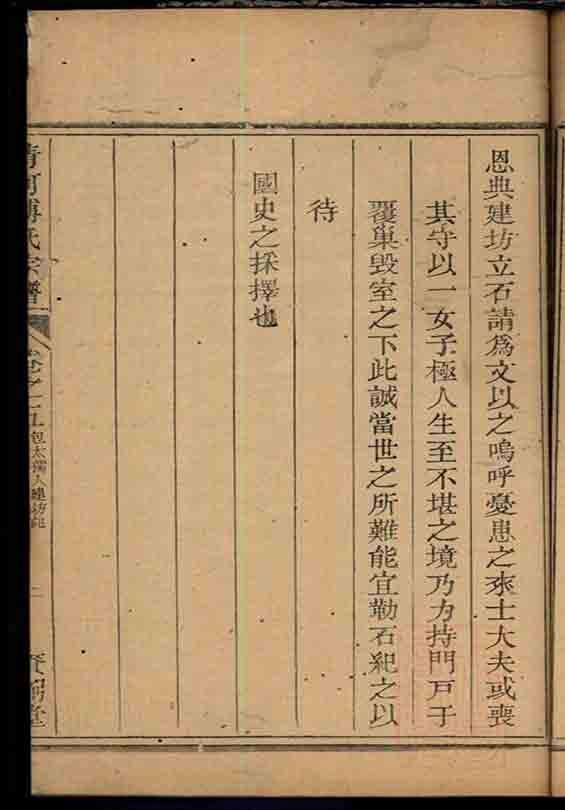 恩典建坊立石請為文以之嗚呼憂患之來士大夫或喪
其守以一女子極人生至不堪之境乃力持門戶于
覆巢毀室之下此誠當世之所難能宜勒石紀之以
待
國史之採擇也
清河傅氏宗譜
卷之五 包太孺人建坊紀 二